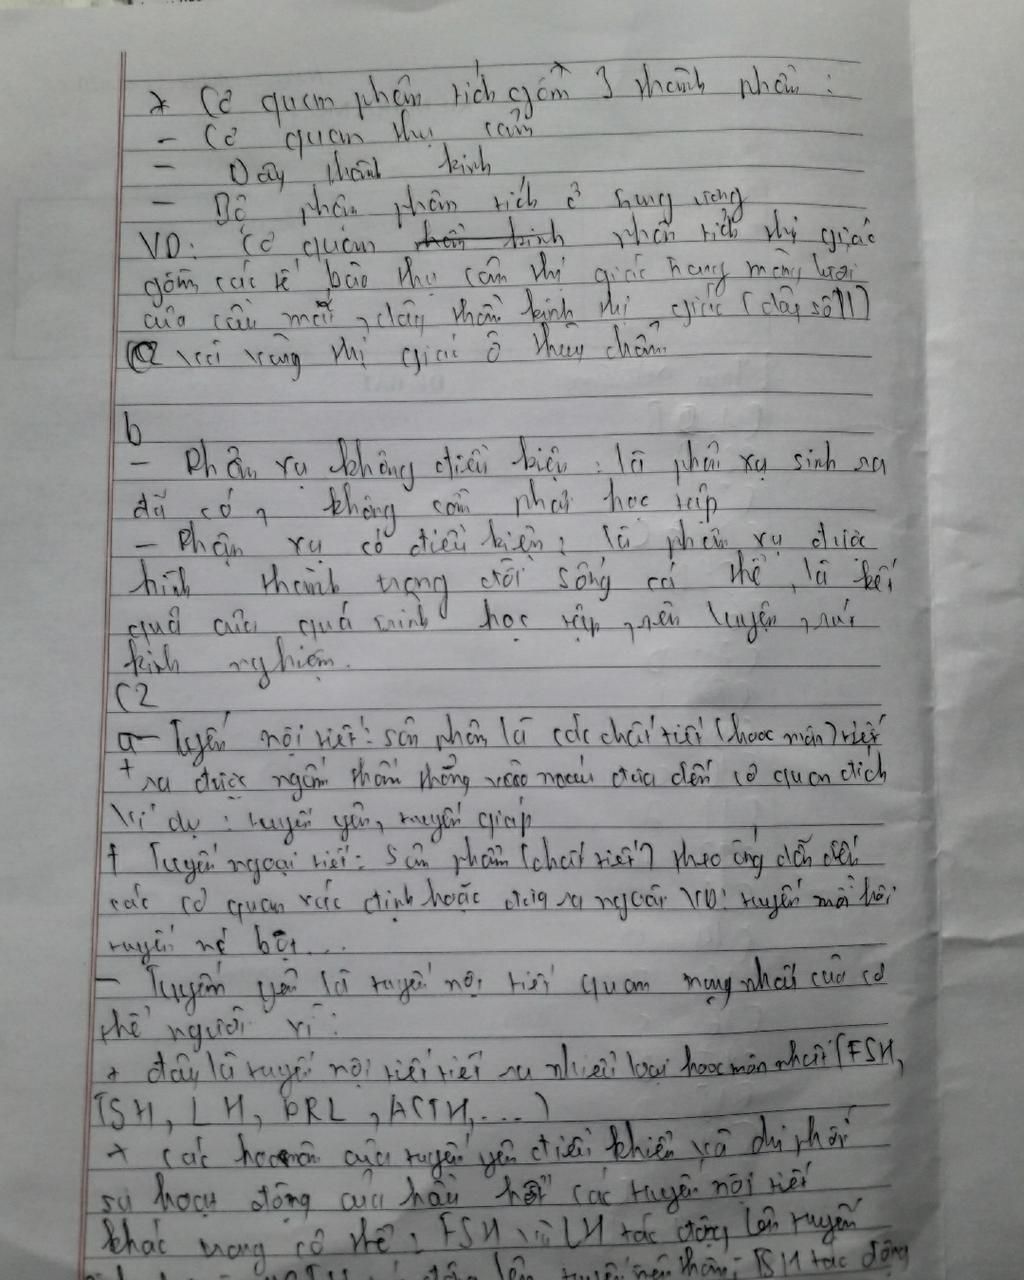 * Cơ quan phân tích gồm 3 thành phần :
- Cơ quan thụ cảm
- Dây thần kinh
- Bộ phận phân tích ở trung ương
VD: Cơ quan phân tích thị giác
gồm các tế bào thụ cảm thị giác trong màng lưới
của cầu mắt, dây thần kinh thị giác (dây số II)
và vùng thị giác ở thùy chẩm
b
- Phản xạ không điều kiện : là phản xạ sinh ra
đã có, không cần phải học tập
- Phản xạ có điều kiện : là phản xạ được
hình thành trong đời sống cá thể, là kết
quả của quá trình học tập, rèn luyện, rút
kinh nghiệm.
C2
a- Tuyến nội tiết : sản phẩm là các chất tiết (hooc môn) tiết
+ ra được ngấm thẳng vào máu đưa đến cơ quan đích
Ví dụ : tuyến yên, tuyến giáp
+ Tuyến ngoại tiết : sản phẩm (chất tiết) theo ống dẫn đến
các cơ quan xác định hoặc đưa ra ngoài VD: tuyến mồ hôi
tuyến nước bọt...
- Tuyến yên là tuyến nội tiết quan trọng nhất của cơ
thể người vì :
+ đây là tuyến nội tiết tiết ra nhiều loại hoocmôn nhất (FSH,
TSH, LH, PRL, ACTH,...)
+ các hoocmôn của tuyến yên điều khiển và chi phối
sự hoạt động của hầu hết các tuyến nội tiết
khác trong cơ thể : FSH và LH tác động lên tuyến
động lên tuyến trên thận; TSH tác động